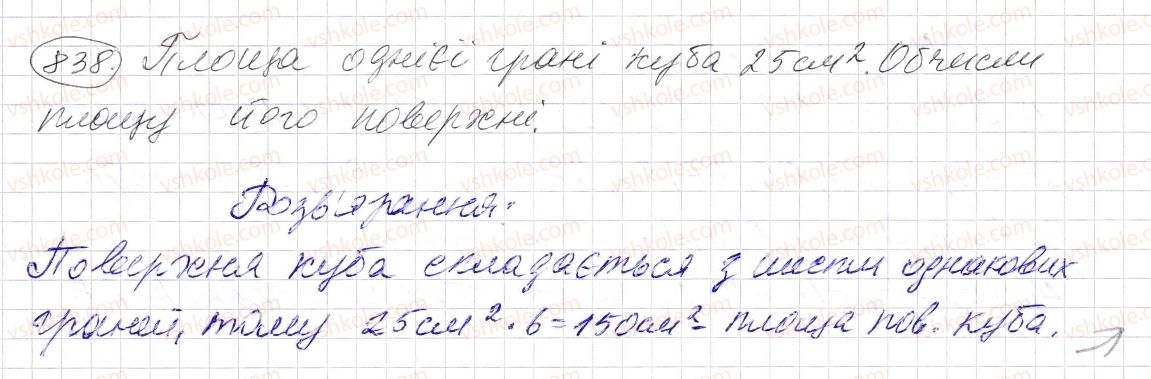 838. Площа однієї грані куба 25см². Обчисли
площу його поверхні.
Розв'язання:
Поверхня куба складається з шести однакових
граней, тому 25см²·6=150см²- площа пов. куба.